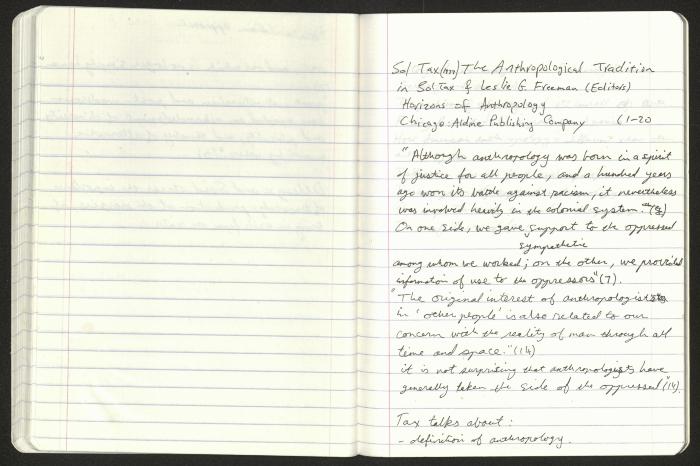 Sol Tax (1977) The Anthropological Tradition
in Sol Tax & Leslie G. Freeman (Editors)
Horizons of Anthropology
Chicago: Aldine Publishing Company (1-20
"Although anthropology was born in a spirit
of justice for all people, and a hundred years
ago won its battle against racism, it nevertheless
was involved heavily in the colonial system."
On one side, we gave support to the oppressed
sympathetic
among whom we worked; on the other, we provided
information of use to the oppressors" (7).
"The original interest of anthropologists
in 'other people' is also related to our
concern with the reality of man through all
time and space." (14)
it is not surprising that anthropologists have
generally taken the side of the oppressed" (14).
Tax talks about:
- definition of anthropology.